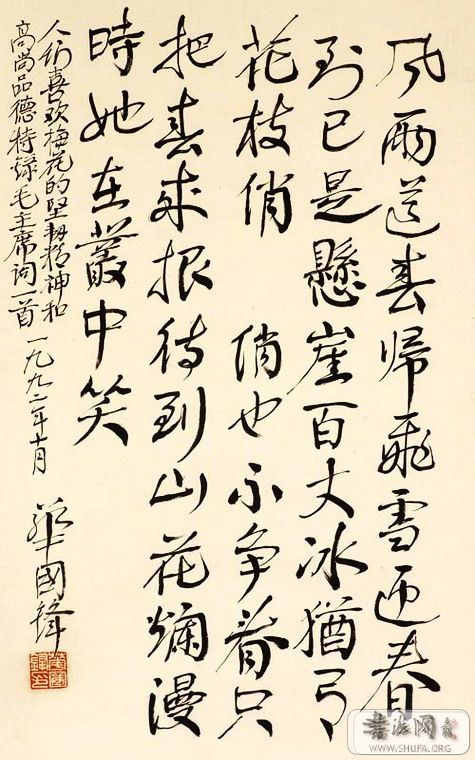 风雨送春歸飛雪迎春
到已是懸崖百丈冰猶有
花枝俏 俏也不争春只
把春来报待到山花爛漫
時她在叢中笑
人们喜欢梅花的坚韧精神和
高尚品德特録毛主席词一首 一九九二年十月
華國鋒
書法网
WWW.SHUFA.ORG